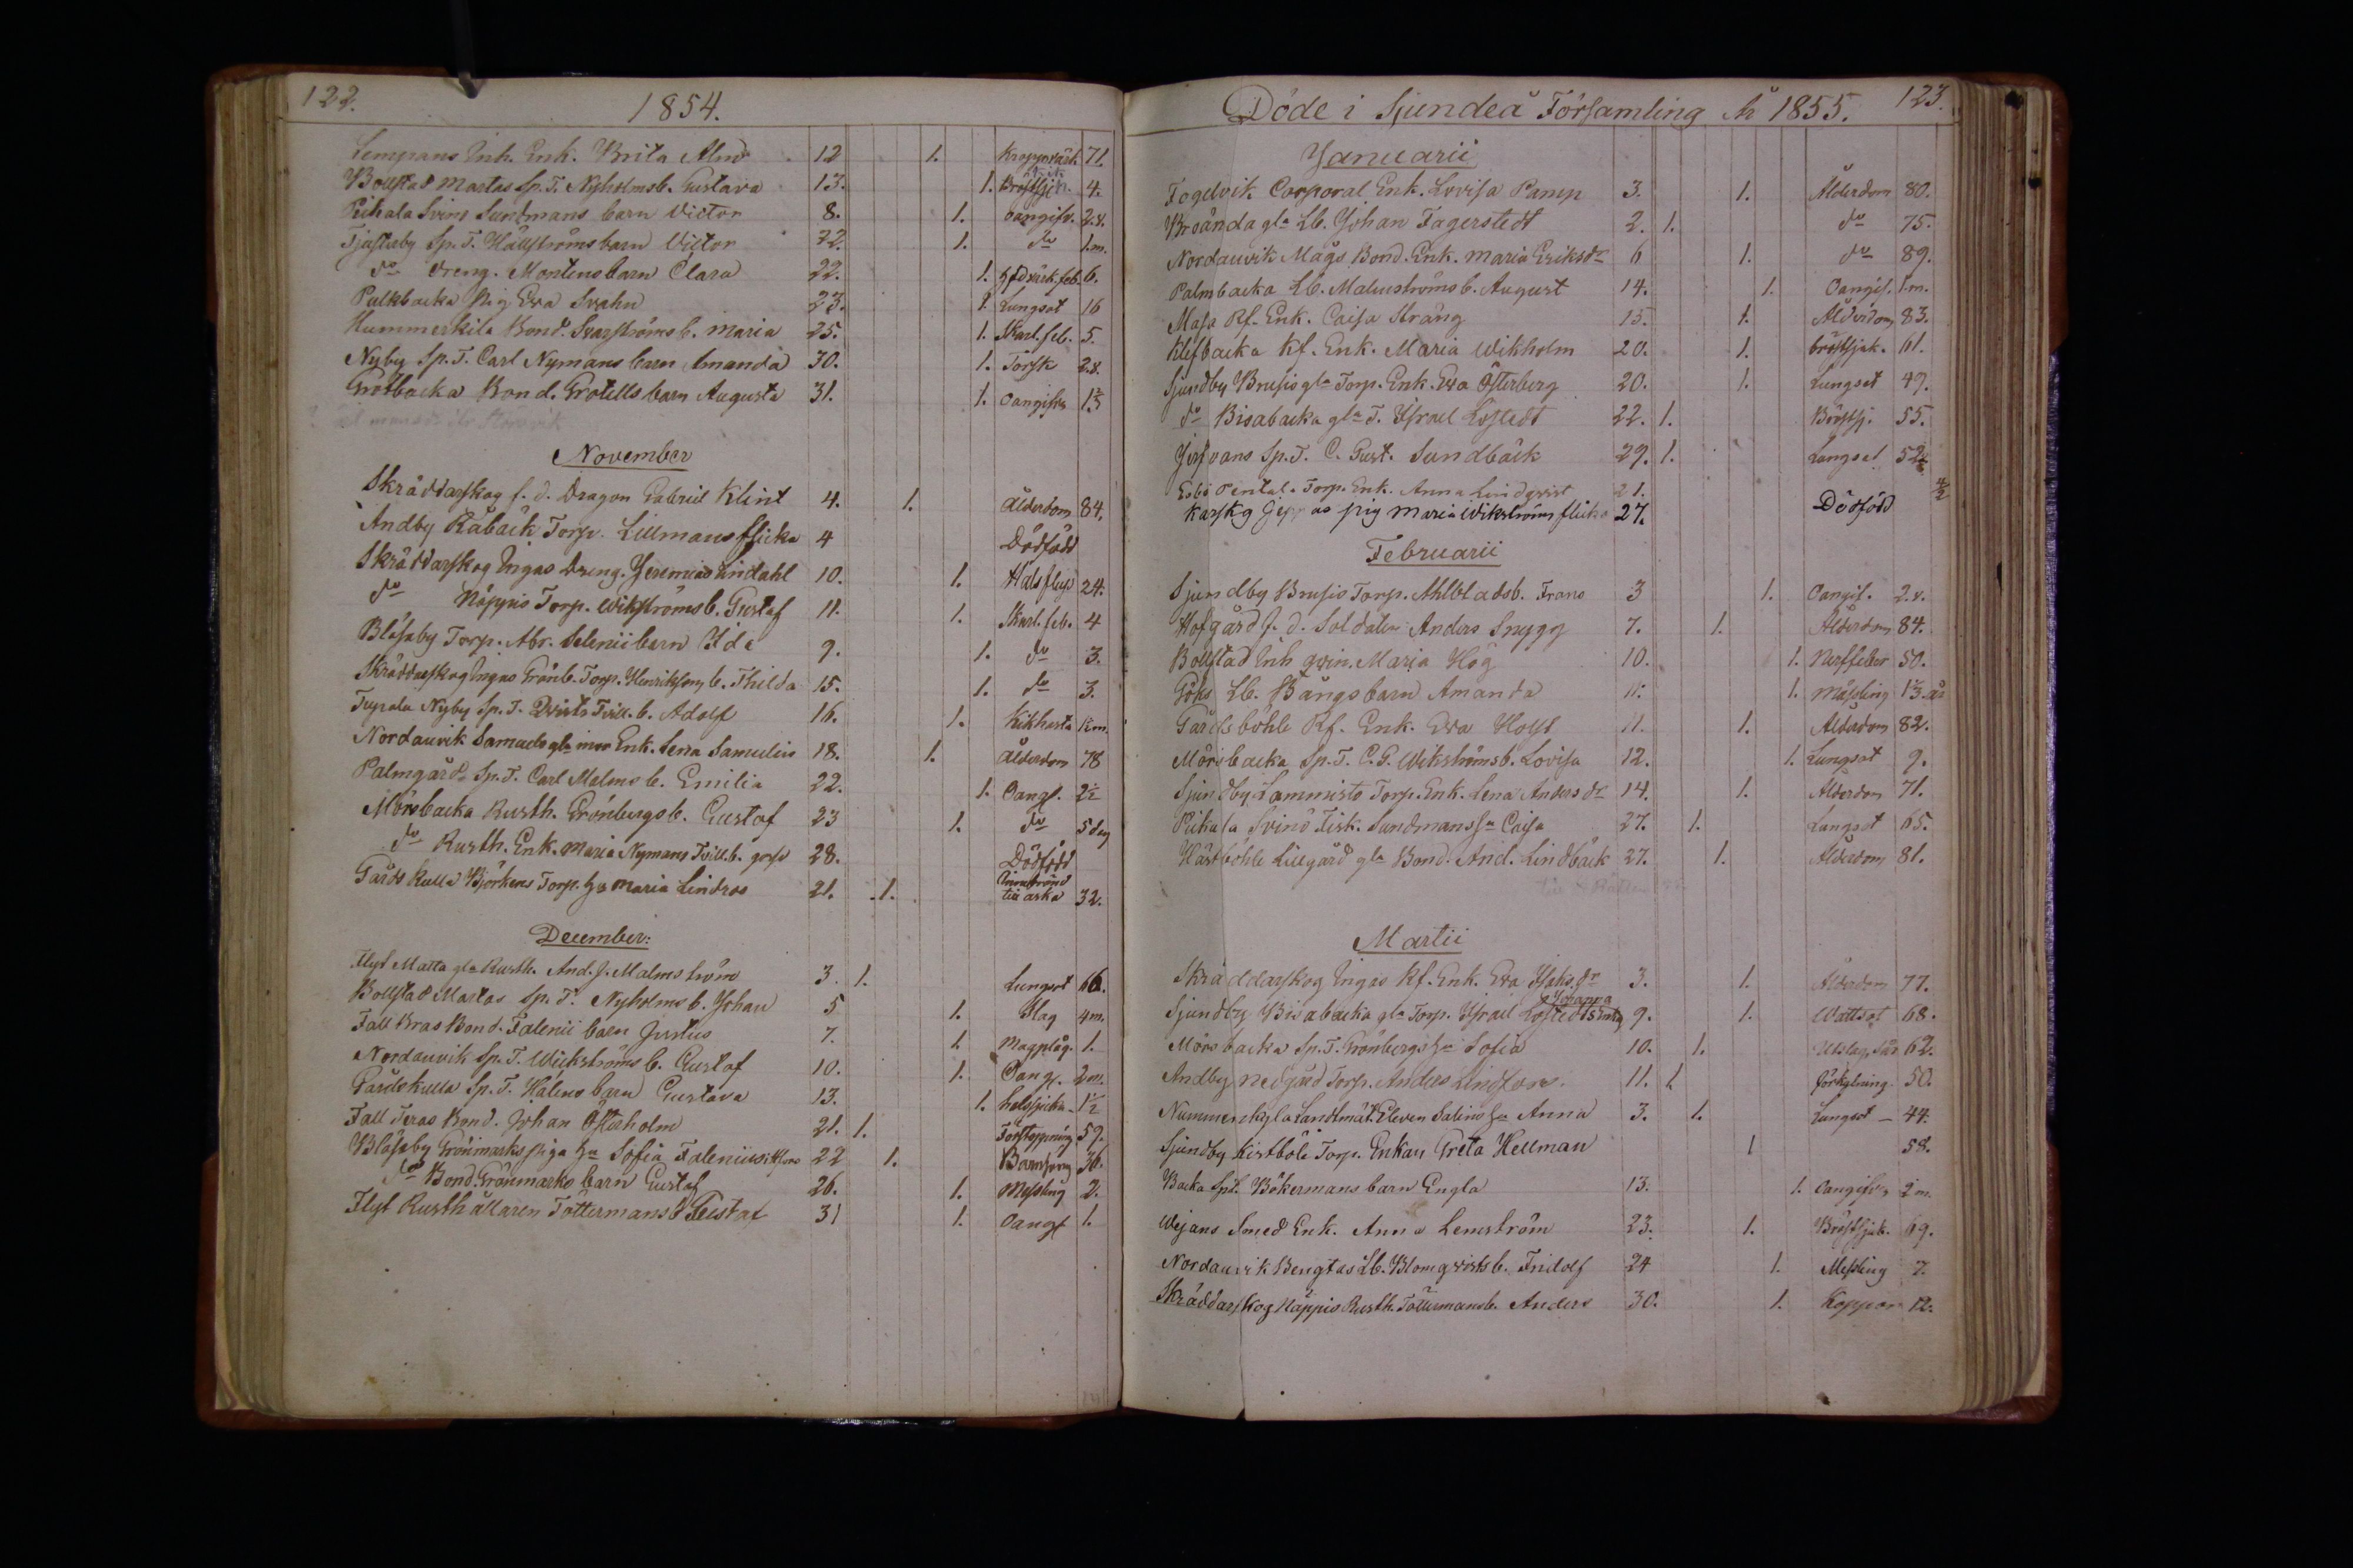 122.
1854.
Lempans Inh. Enk. Brita Alm 12 1. Kroppsvärk 71.
Bollstad Martas Sp. T. Nyholms b. Gustava 13. 1. Bröstsj. 4.
Pickala Svinö Sundmans barn Victor 8. 1. oangifv. 2.v.
Tjusterby Sp. T. Hällströms barn Victor 22. 1. do 1.m.
do Dreng. Mortens barn Clara 22. 1. feb. 6.
Pulkbacka Pig. Eva Svahn 23. 1. Lungsot 16
Hummerkila Bond. Svarfströms b. Maria 25. 1. Skarl. feb. 5.
Nyby Sp. T. Carl Nymans barn Amanda 30. 1. Torsk 2.v.
Grotbacka Bond. Grotells barn Augusta 31. 1. oangifv.
November
Skräddarskog f. d. Dragon Gabriel Klint 4. 1. Ålderdom 84.
Andby Råbäck Torp. Lillmans flicka 4 Dödfödd
Skräddarskog Ingas Dreng. Jeremias Lindahl 10. 1. Halsfluss 24.
do Näppis Torp. Wikströms b. Gustaf 11. 1. Skarl. feb. 4
Blåsaby Torp. Abr. Selenii barn Ida 9. 1. do 3.
Skräddarskog Ingas Grönb. Torp. Henrikssons b. Thilda 15. 1. do 3.
Tupala Nyby Sp. T. Qvists Tvill. b. Adolf 16. 1. Kikhosta
Nordanvik Samuels gla Enk. Lena Samuelis 18. 1. Ålderdom 78
Palmgård Sp. T. Carl Malms b. Emilia 22. 1. Oangf. 2½
Mörsbacka Rusth. Grönbergs b. Gustaf 23 1. do 5 dag
do Rusth. Enk. Maria Nymans Tvill. b. 28. Dödfödd
Gårdskulla Björkens Torp. Hu Maria Lindroos 21. 1. Innebränd till aska 32.
December:
Flyt Matta gla Rusth. And. J. Malmström 3. 1. Lungsot 66.
Bollstad Martas Sp. T. Nyholms b. Johan 5 1. Slag 4m.
Fall Bras Bond. Falenii barn Justus 7. 1. Magplåg. 1.
Nordanvik Sp. T. Wickströms b. Gustaf 10. 1. Oangf. 2m.
Gårdskulla Sp. T. Haléns barn Gustava 13. 1. halssjuka 1½
Fall Teras Bond. Johan Österholm 21. 1. Förstoppning 59.
Blåsaby Grönmarks piga Hu Sofia Falenius 22 1. Barnsäng 36.
do Bond. Grönmarks barn Gustaf 26. 1. Messling 2.
Flyt Rusthållaren Töttermans b. Gustaf 31 1. Oangf 1.
Döde i Sjundeå Församling År 1855.
123.
Januarii
Fogelvik Corporal Enk. Lovisa Pamp 3. 1. Ålderdom 80.
Breanda gla Lb. Johan Fagerstedt 2. 1. do 75.
Nordanvik Mågs Bond. Enk. Maria Eriksdr 6 1. do 89.
Palmbacka Lb. Malmströms b. August 14. 1. Oangif. 1.m.
Masa Rf. Enk. Caisa Sträng 15. 1. Ålderdom 83.
Klefbacka Kf. Enk. Maria Wikholm 20. 1. bröstsjuk. 61.
Sjundby Brusis gla Torp. Enk. Eva Österberg 20. 1. Lungsot 49.
do Bisabacka gla T. Israel Löfstedt 22. 1. Bröstsj. 55.
Jerfvans Sp. T. C. Gust. Sundbäck 29. 1. Lungsot 52
Esbo Pentala Torp. Enk. Anna Lindqvist 21.
Karskog Jeppas pig Maria Wikströms flicka 27. Dödfödd
Februarii
Sjundby Brusis Torp. Ahlblads b. Frans 3 1. Oangif. 2.v.
Hofgård f. d. Soldaten Anders Snygg 7. 1. Ålderdom 84.
Bollstad Inh. qvin. Maria Hög 10. 1. Nerffeber 50.
Göks Lb. Bångs barn Amanda 11. 1. Mässling
Gårdsböhle Rf. Enk. Eva Holst 11. 1. Ålderdom 82.
Mörsbacka Sp. T. C. G. Wikströms b. Lovisa 12. 1. Lungsot 9.
Sjundby Lammisto Torp. Enk. Lena Andersdr 14. 1. Ålderdom 71.
Pickala Svinö Fisk. Sundmans Hu Caisa 27. 1. Lungsot 65.
Harböhle Lillgård gla Bond. And. Lindbäck 27. 1. Ålderdom 81.
Martii
Skräddarskog Ingas Kf. Enk. Eva Isaksdr 3. 1. Ålderdom 77.
Sjundby Bisabacka gla Torp. Israel Löfstedts Enka Johanna 9. 1. Wattsot 68.
Mörsbacka Sp. T. Grönbergs Hu Sofia 10. 1. Utslag, sår 62.
Andby Nedgård Torp. Anders Lindfors. 11. 1. förkylning 50.
Nummenkyla Landtmät. Eleven Salins Hu Anna 3. 1. Lungsot 44.
Sjundby Kistböle Torp. Enkan Greta Hellman 1 58.
Backa Spt. Böckermans barn Engla 13. 1. Oangifv. 2m.
Wejans Smed Enk. Anna Lemström 23. 1. Bröstsjuk. 69.
Nordanvik Bengtas Lb. Blomqvists b. Fridolf 24 1. Messling 7.
Skräddarskog Näppis Rusth. Töttermans b. Anders 30. 1. Koppor 12.